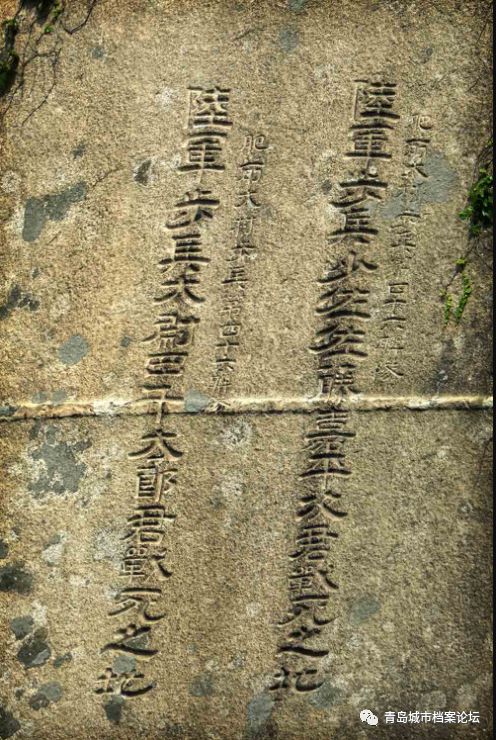 肥前大村步兵第四十六聯隊
陸軍步兵少佐佐藤嘉平次君戰死之地
肥前大村步兵第四十六聯隊
陸軍步兵大尉太郎君戰死之地
青岛城市档案论坛